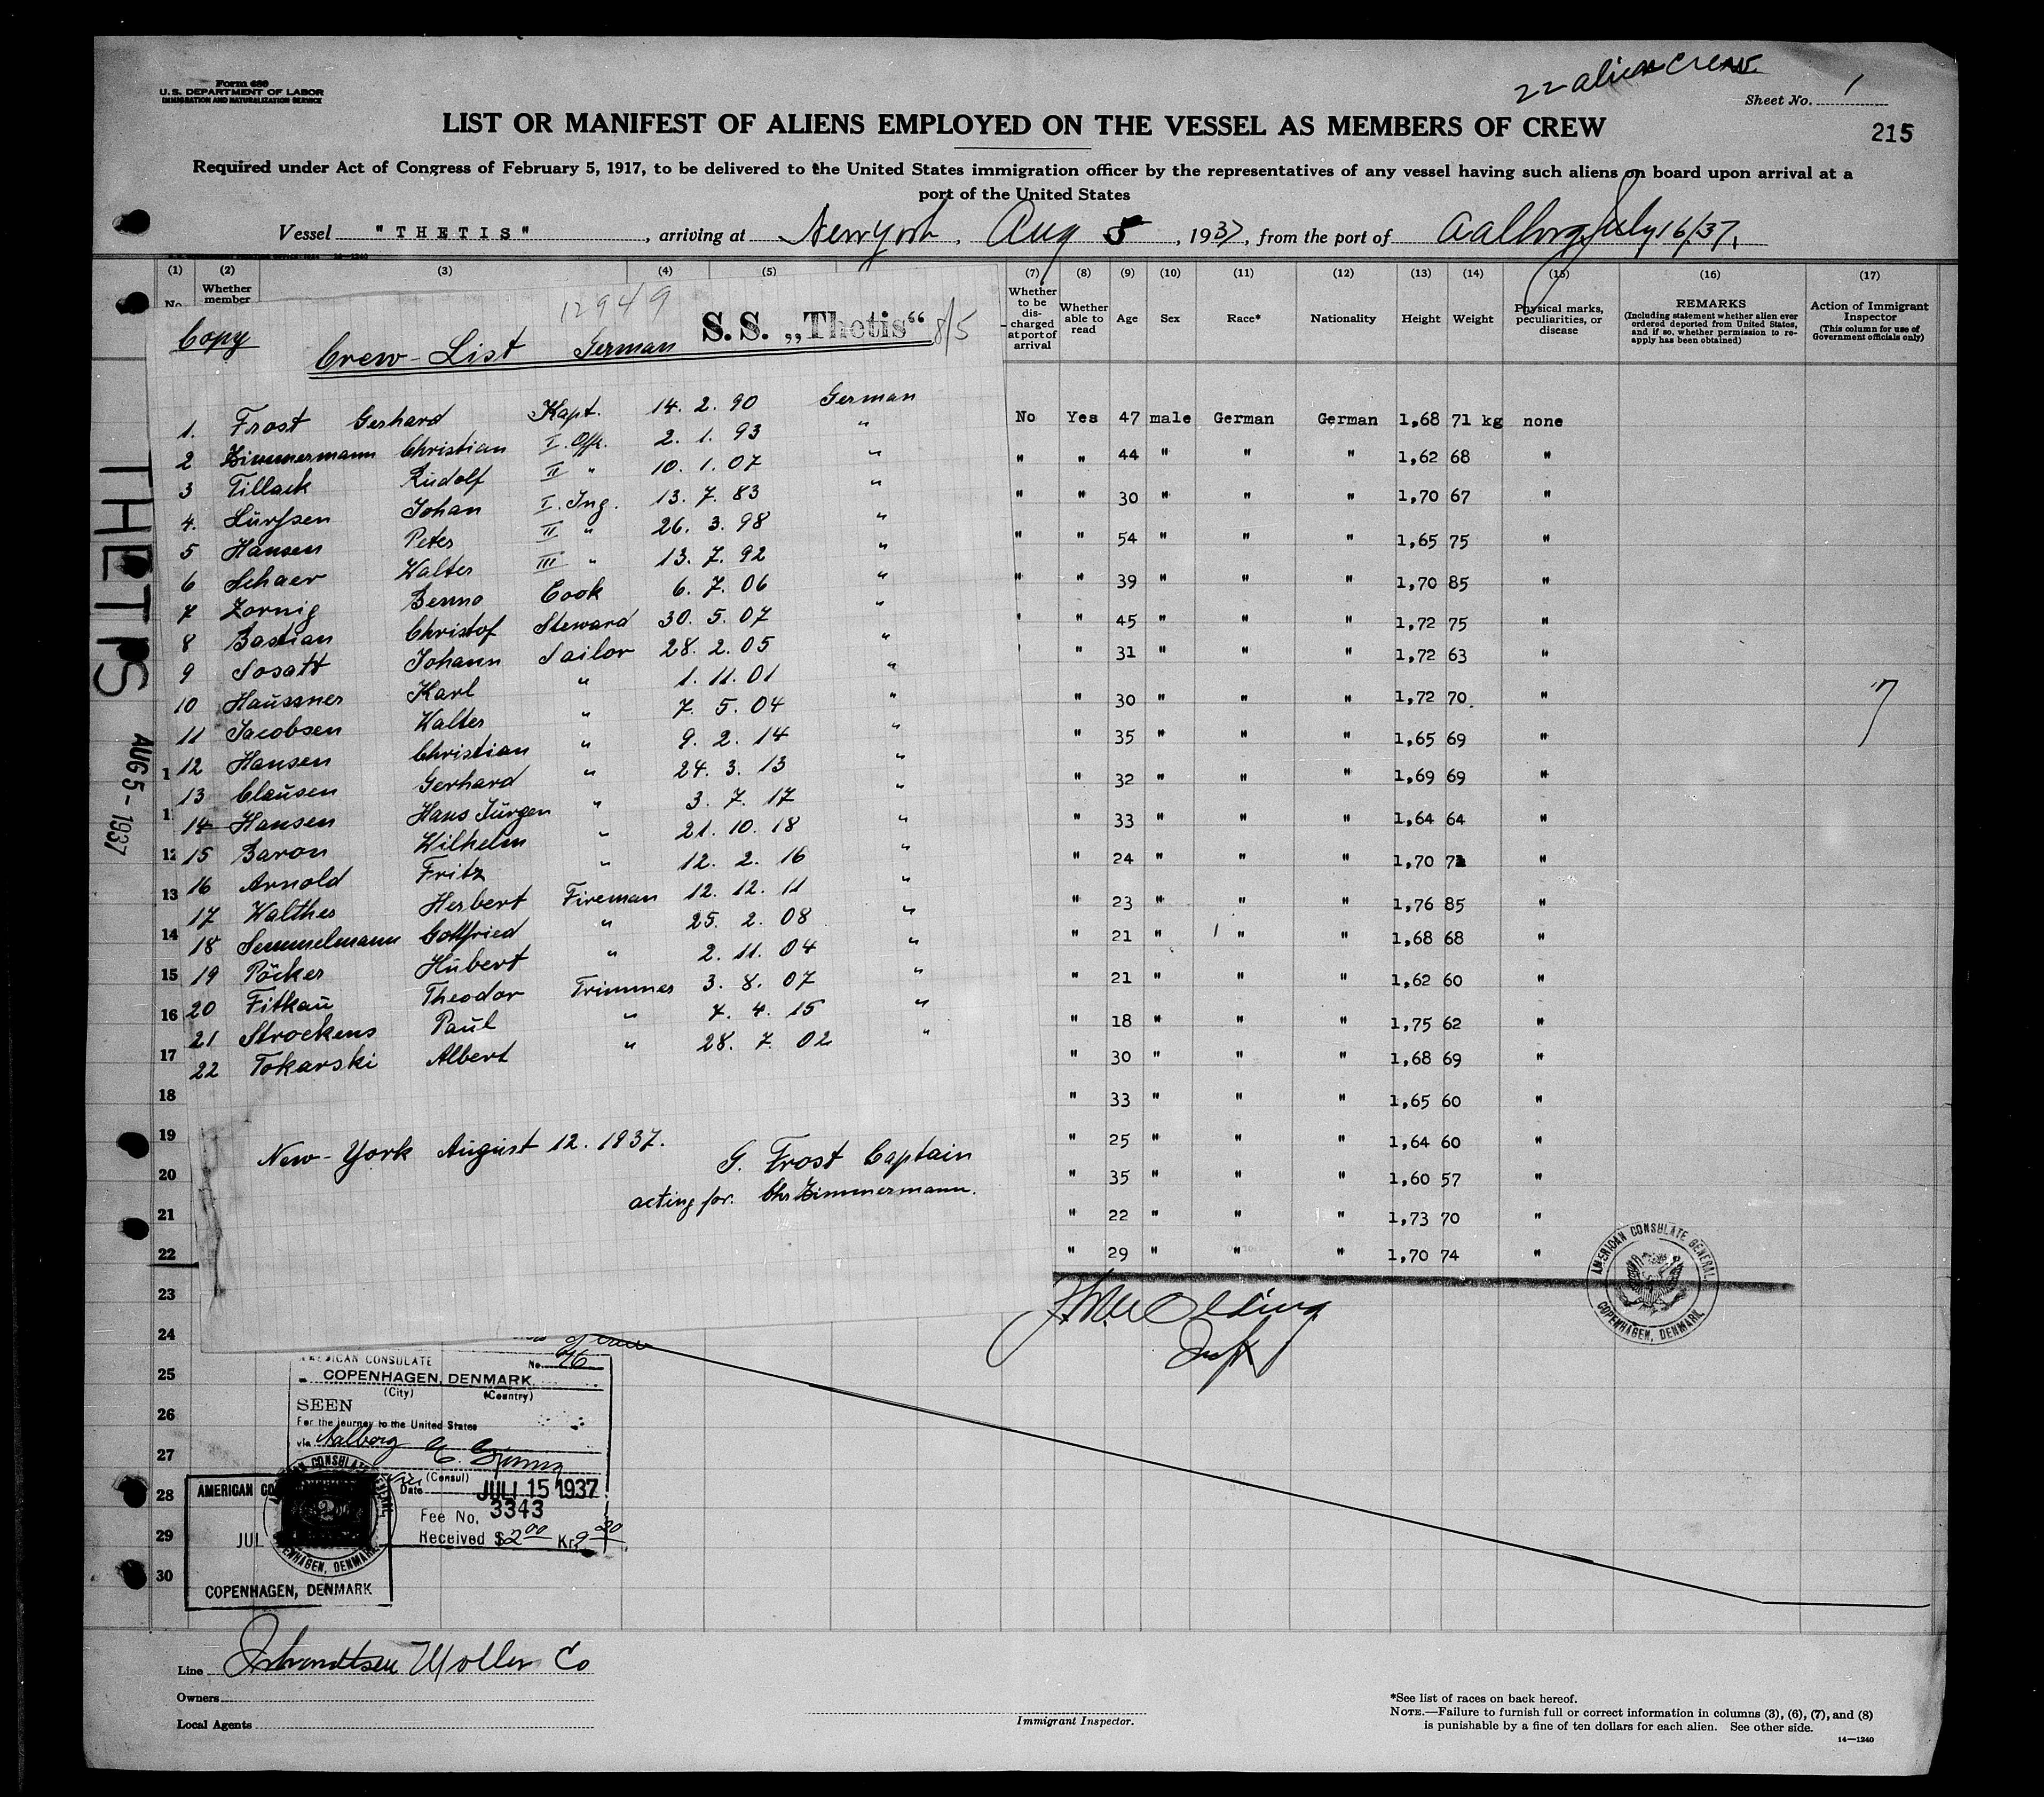 Form 680
U. S. DEPARTMENT OF LABOR
IMMIGRATION AND NATURALIZATION SERVICE
22 alien crew
Sheet No. 1
LIST OR MANIFEST OF ALIENS EMPLOYED ON THE VESSEL AS MEMBERS OF CREW
215
Required under Act of Congress of February 5, 1917, to be delivered to the United States immigration officer by the representatives of any vessel having such aliens on board upon arrival at a
port of the United States
Vessel "THETIS", arriving at New York, Aug 5, 1937, from the port of Aalborg July 16/37.
(1) (2) (3) (4) (5) (7) (8) (9) (10) (11) (12) (13) (14) (15) (16) (17)
No.
Whether member
Whether to be discharged at port of arrival
Whether able to read
Age
Sex
Race*
Nationality
Height
Weight
Physical marks, peculiarities, or disease
REMARKS
(Including statement whether alien ever ordered deported from United States, and if so, whether permission to reapply has been obtained)
Action of Immigrant Inspector
(This column for use of Government officials only)
12949
Copy
Crew-List German S.S. „Thetis“ 8/5
1. Frost Gerhard Kapt. 14. 2. 90 German
2 Zimmermann Christian I. Offz. 2. 1. 93 "
3 Tillack Rudolf II " 10. 1. 07 "
4. Lürssen Johan I. Ing. 13. 7. 83 "
5 Hansen Peter II " 26. 3. 98 "
6 Schaer Walter III " 13. 7. 92 "
7 Zornig Benno Cook 6. 7. 06 "
8 Bastian Christof Steward 30. 5. 07 "
9 Sosatt Johann Sailor 28. 2. 05 "
10 Haussner Karl " 1. 11. 01 "
11 Jacobsen Walter " 7. 5. 04 "
12 Hansen Christian " 9. 2. 14 "
13 Clausen Gerhard " 24. 3. 13 "
14 Hansen Hans Jürgen " 3. 7. 17 "
15 Baron Wilhelm " 21. 10. 18 "
16 Arnold Fritz " 12. 2. 16 "
17 Walther Herbert Fireman 12. 12. 11 "
18 Semmelmann Gottfried " 25. 2. 08 "
19 Pöcker Hubert " 2. 11. 04 "
20 Fitkau Theodor Trimmer 3. 8. 07 "
21 Strockens Paul " 4. 4. 15 "
22 Tokarski Albert " 28. 7. 02 "
New-York August 12. 1937.
G. Frost Captain
acting for. Chr Zimmermann.
No Yes 47 male German German 1,68 71 kg none
" " 44 " " " 1,62 68 "
" " 30 " " " 1,70 67 "
" " 54 " " " 1,65 75 "
" " 39 " " " 1,70 85 "
" " 45 " " " 1,72 75 "
" " 31 " " " 1,72 63 "
" 30 " " " 1,72 70. "
" 35 " " " 1,65 69 "
" 32 " " " 1,69 69 "
" 33 " " " 1,64 64 "
" 24 " " " 1,70 72 "
" 23 " " " 1,76 85 "
" 21 " " " 1,68 68 "
" 21 " " " 1,62 60 "
" 18 " " " 1,75 62 "
" 30 " " " 1,68 69 "
" 33 " " " 1,65 60 "
" 25 " " " 1,64 60 "
" 35 " " " 1,60 57 "
" 22 " " " 1,73 70 "
" 29 " " " 1,70 74 "
THETIS
AUG 5 - 1937
12
13
14
15
16
17
18
19
20
21
22
23
24
25
26
27
28
29
30
AMERICAN CONSULATE GENERAL
COPENHAGEN, DENMARK
AMERICAN CONSULATE No.
COPENHAGEN, DENMARK.
(City) (Country)
SEEN
For the journey to the United States
via Aalborg
(Consul)
Date JULI 15 1937
Fee No. 3343
Received $2.00 Kr.
JUL
COPENHAGEN, DENMARK
Line Isbrandtsen Moller Co
Owners
Local Agents
Immigrant Inspector.
*See list of races on back hereof.
NOTE.—Failure to furnish full or correct information in columns (3), (6), (7), and (8)
is punishable by a fine of ten dollars for each alien. See other side.
14—1240